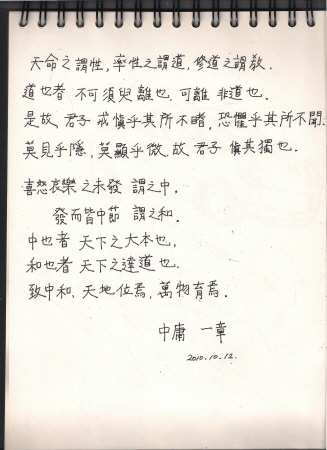 天命之謂性, 率性之謂道, 修道之謂敎.
道也者 不可須臾離也, 可離 非道也.
是故, 君子 戒愼乎其所不睹, 恐懼乎其所不聞.
莫見乎隱, 莫顯乎微, 故 君子 愼其獨也.
喜怒哀樂 之未發 謂之中,
發而皆中節 謂之和.
中也者 天下之大本也,
和也者 天下之達道也.
致中和, 天地位焉, 萬物育焉.
中庸 一章
2010.10.12.